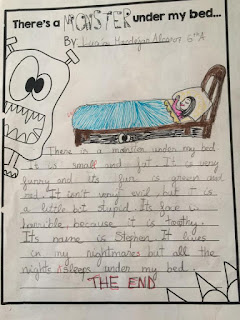 There's a MONSTER under my bed...
By: 6th A
There is a monster under my bed
It is small and fat. It is very
funny and its fur is green and
red. It isn't very evil but it is
a little bit stupid. Its face is
horrible because it is toothy.
Its name is Stephen. It lives
in my nightmares but all the
nights sleeps under my bed.
THE END